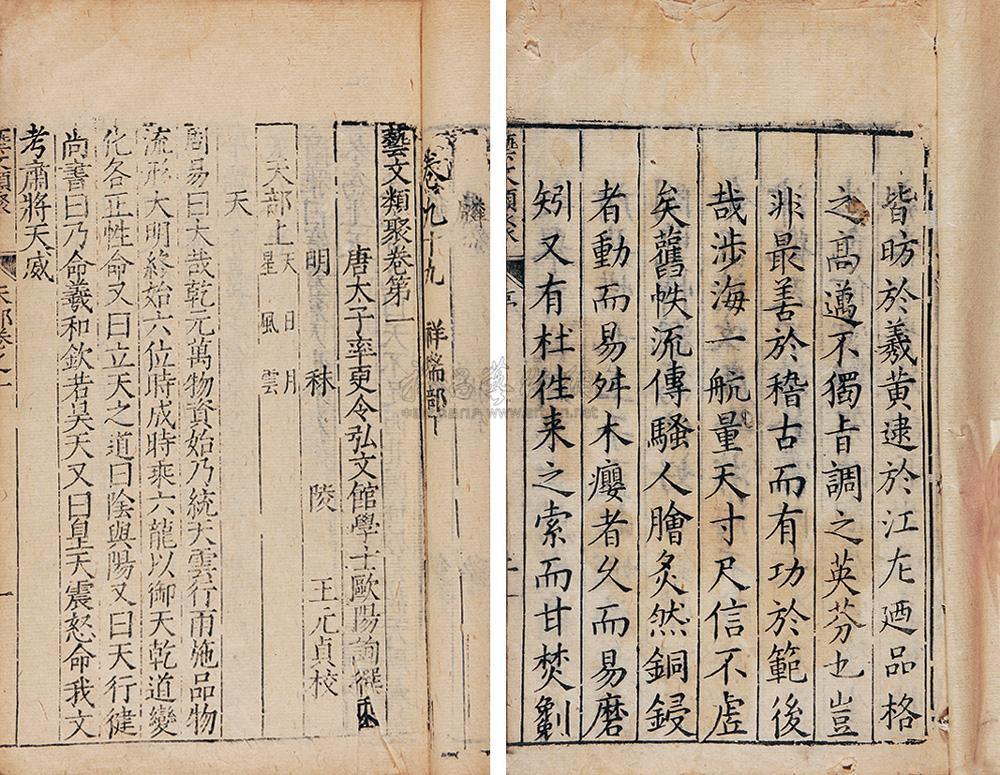 皆昉於羲黃逮於江左廼品格
之高邁不獨音調之英芬也豈
非最善於稽古而有功於範後
哉涉海一航量天寸尺信不虗
矣舊帙流傳騷人膾炙然銅鋟
者動而易舛木癭者久而易磨
矧又有杜徃來之索而甘焚劓
藝文類聚
序
卷九十九 祥瑞部下
藝文類聚卷第一
唐太子率更令弘文館學士歐陽詢撰
明 秣 陵 王元貞校
天部上 天 日 月
星 風 雲
天
周易曰大哉乾元萬物資始乃統天雲行雨施品物
流形大明終始六位時成時乘六龍以御天乾道變
化各正性命又曰立天之道曰陰與陽又曰天行健
尚書曰乃命羲和欽若昊天又曰皇天震怒命我文
考肅將天威
藝文類聚
天部卷之一
一